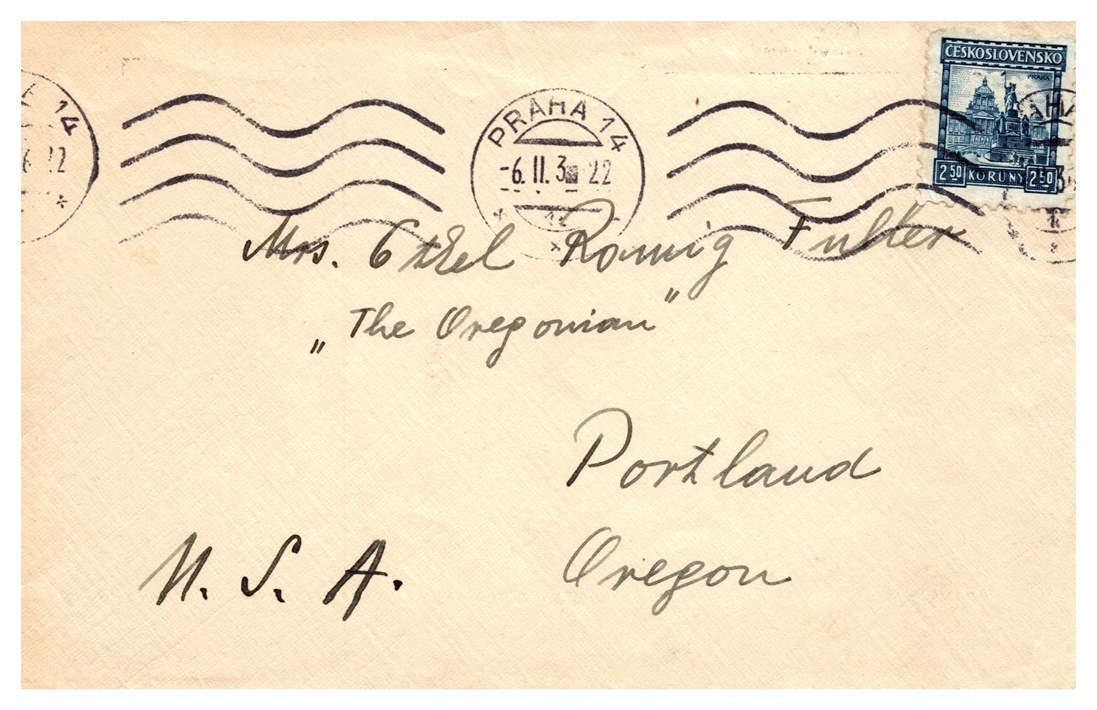 ČESKOSLOVENSKO
PRAHA
2 50 KORUNY 2 50
PRAHA 14
-6. II. 3 22
14
Mrs. Ethel Romig Fuller
„The Oregonian"
Portland
Oregon
U. S. A.